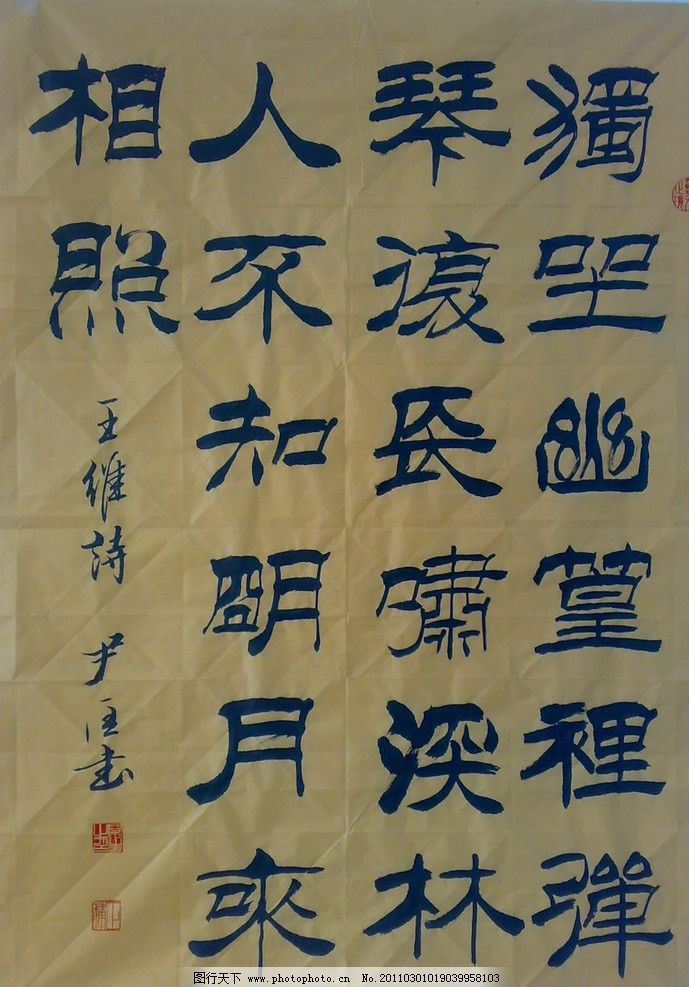 獨坐幽篁裡彈
琴復長嘯深林
人不知明月來
相照
王維詩 尹匡書
图行天下 www.photophoto.cn No.20110301019039958103